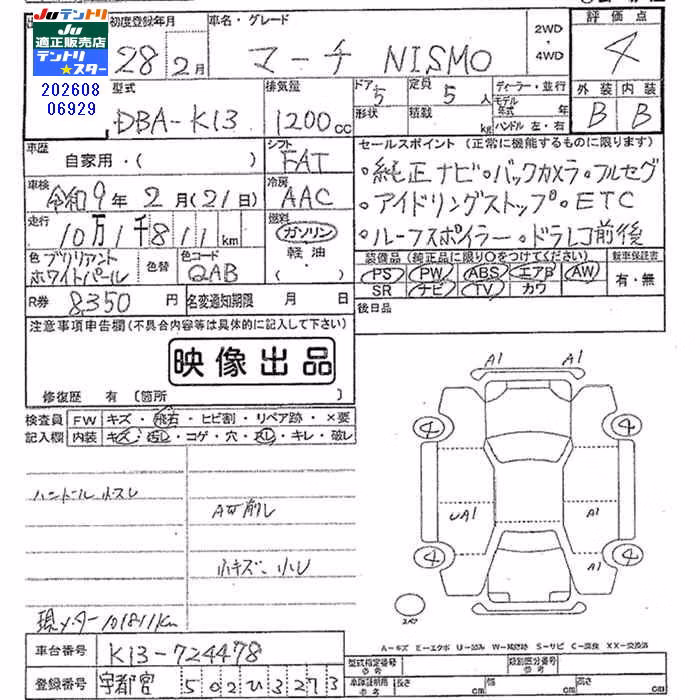 Juテントリ
Ju
適正販売店
テントリ
★スター
202608
06929
初度登録年月
28 2月
車名・グレード
マーチ NISMO
2WD
・
4WD
評価点
4
外装 内装
B B
型式
DBA-K13
排気量
1200cc
ドア 5
形状
定員 5人
積載 kg
ディーラー・並行
モデル年式 年
ハンドル 左・右
車歴
自家用・( )
シフト
FAT
セールスポイント (正常に機能するものに限ります)
・純正ナビ・バックカメラ・フルセグ
・アイドリングストップ・ETC
・ルーフスポイラー・ドラレコ前後
車検
令和9年2月(21日)
冷房
AAC
走行
10万1千811km
燃料
ガソリン
軽油
・( )
色 ブリリアントホワイトパール
色替
色コード
QAB
装備品 (純正品に限り○をつけてください)
PS PW ABS エアB AW
SR ナビ TV カワ
新車保証書
有・無
R券 8350円
名変通知期限 月 日
後日品
注意事項申告欄(不具合内容等は具体的に記入して下さい)
映像出品
修復歴 有 〔箇所 〕
検査員記入欄
FW キズ・飛石・ヒビ割・リペア跡・×要
内装 キズ・汚し・コゲ・穴・スレ・キレ・破レ
ハンドル小スレ
AW削レ
小キズ、小ヘコ
現メーター101811km
A1 A1
4 4
UA1 A1
A1
4 4
スペア
A-キズ E-エクボ U-凹み W-補修跡 S-サビ C-腐食 XX-交換済
車台番号 K13-724478
登録番号 宇都宮 502ひ3273
型式指定番号 参考
類別区分番号 参考
車庫証明用 参考
長さ cm
幅 cm
高さ cm